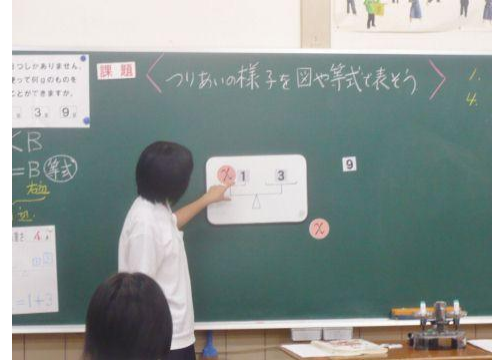 つしかありません。
使って何gのものを
ことができますか。
3g 9g
課題
つりあいの様子を図や等式で表そう
1.
4.
<B
=B 等式
x 1 3
9
x
=1+3